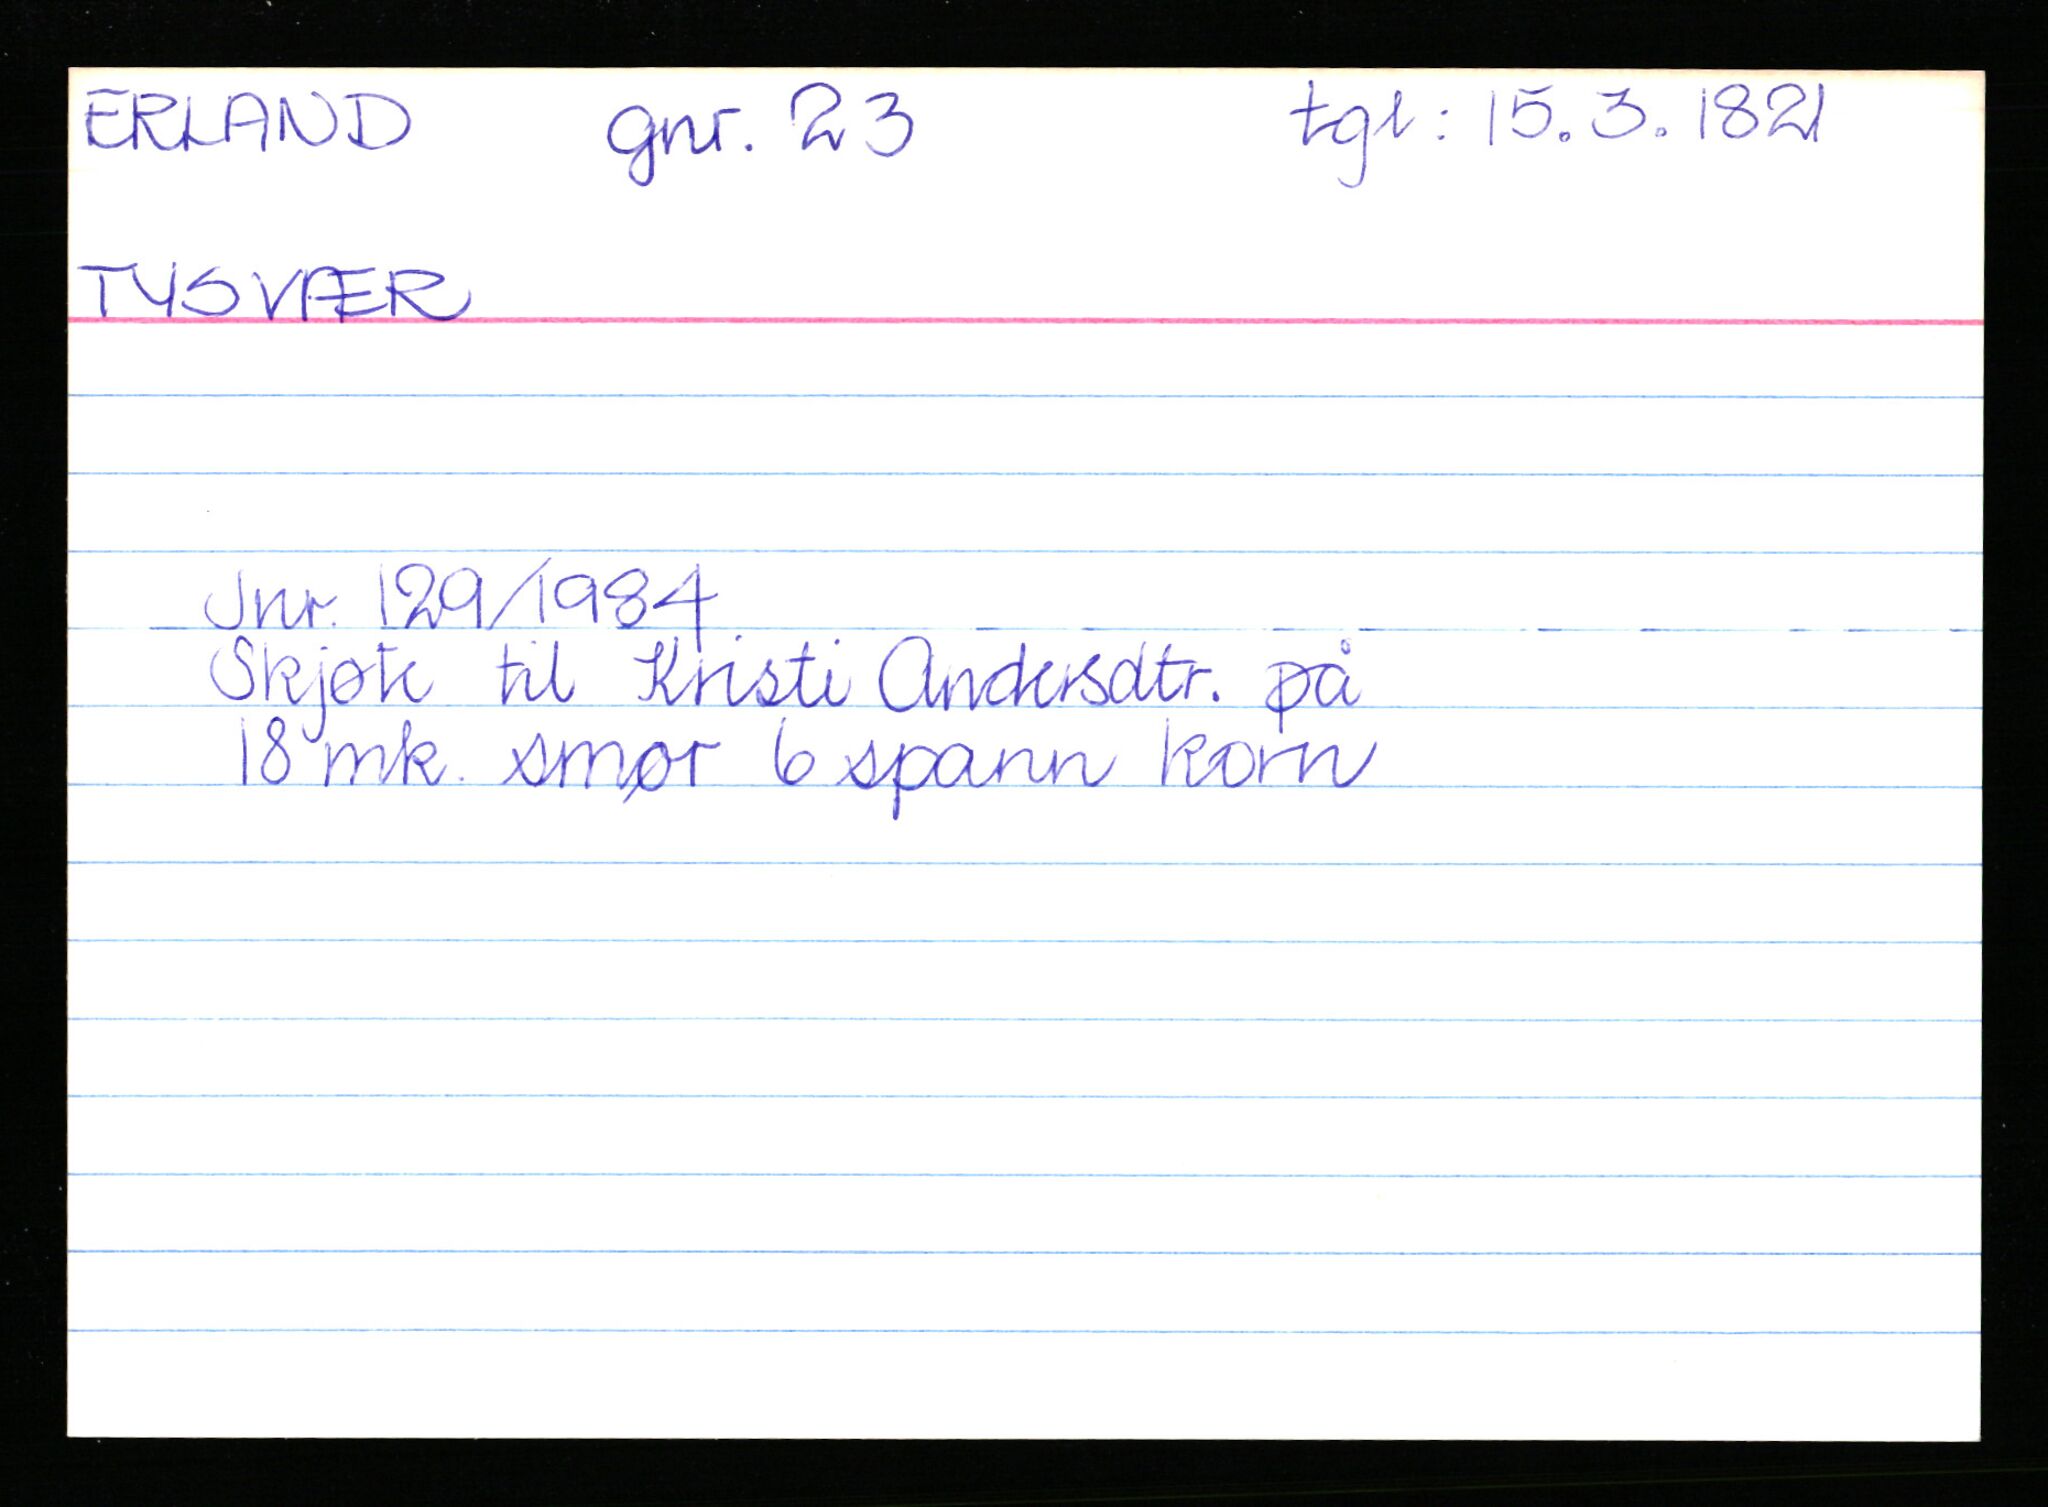 ERLAND gnr. 23 tgl: 15.3.1821
TYSVÆR
Jnr. 129/1984
Skjøte til Kristi Andersdtr. på
18 mk. smør 6 spann korn